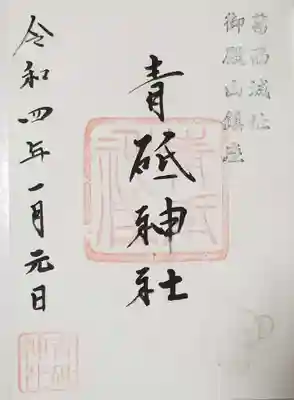 葛西城址
御殿山鎮座
青砥神社
令和四年一月元日